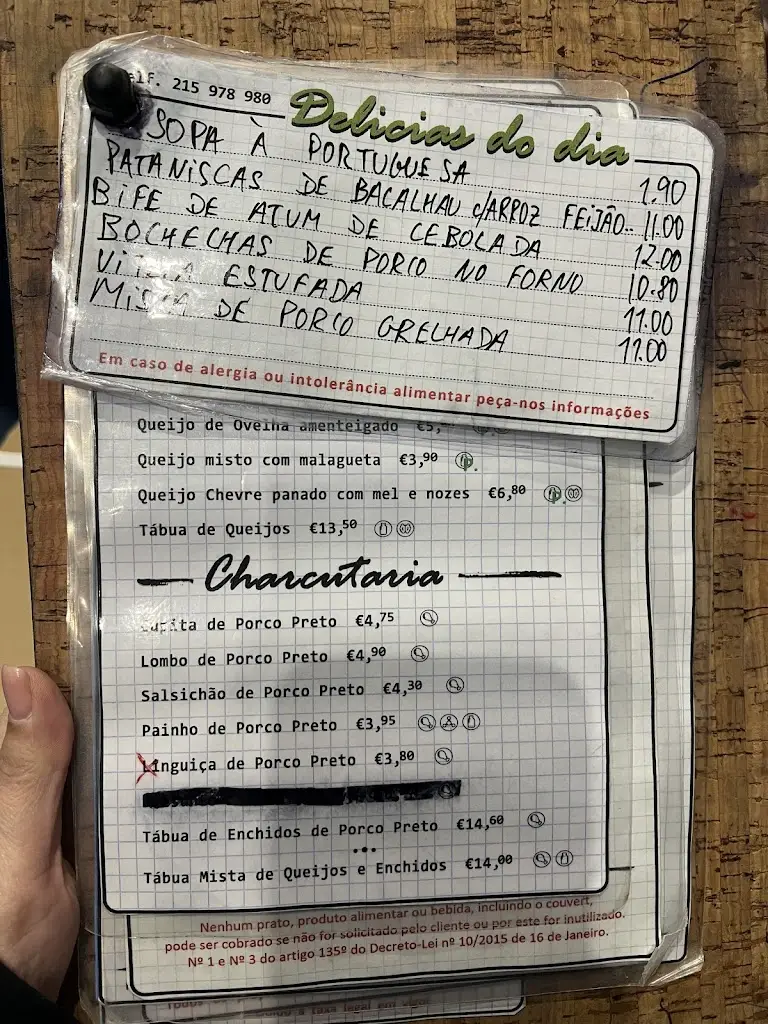 elf. 215 978 980
Delicias do dia
SOPA À PORTUGUESA 1.90
PATANISCAS DE BACALHAU C/ARROZ FEIJÃO.. 11.00
BIFE DE ATUM DE CEBOLADA 12.00
BOCHECHAS DE PORCO NO FORNO 10.80
ESTUFADA 11.00
DE PORCO GRELHADA 11.00
Em caso de alergia ou intolerância alimentar peça-nos informações
Queijo de Ovelha amenteigado €5,
Queijo misto com malagueta €3,90
Queijo Chevre panado com mel e nozes €6,80
Tábua de Queijos €13,50
Charcutaria
de Porco Preto €4,75
Lombo de Porco Preto €4,90
Salsichão de Porco Preto €4,30
Painho de Porco Preto €3,95
Linguiça de Porco Preto €3,80
Tábua de Enchidos de Porco Preto €14,60
•••
Tábua Mista de Queijos e Enchidos €14,00
Nenhum prato, produto alimentar ou bebida, incluindo o couvert,
pode ser cobrado se não for solicitado pelo cliente ou por este for inutilizado.
Nº 1 e Nº 3 do artigo 135º do Decreto-Lei nº 10/2015 de 16 de Janeiro.
a taxa legal em vigor